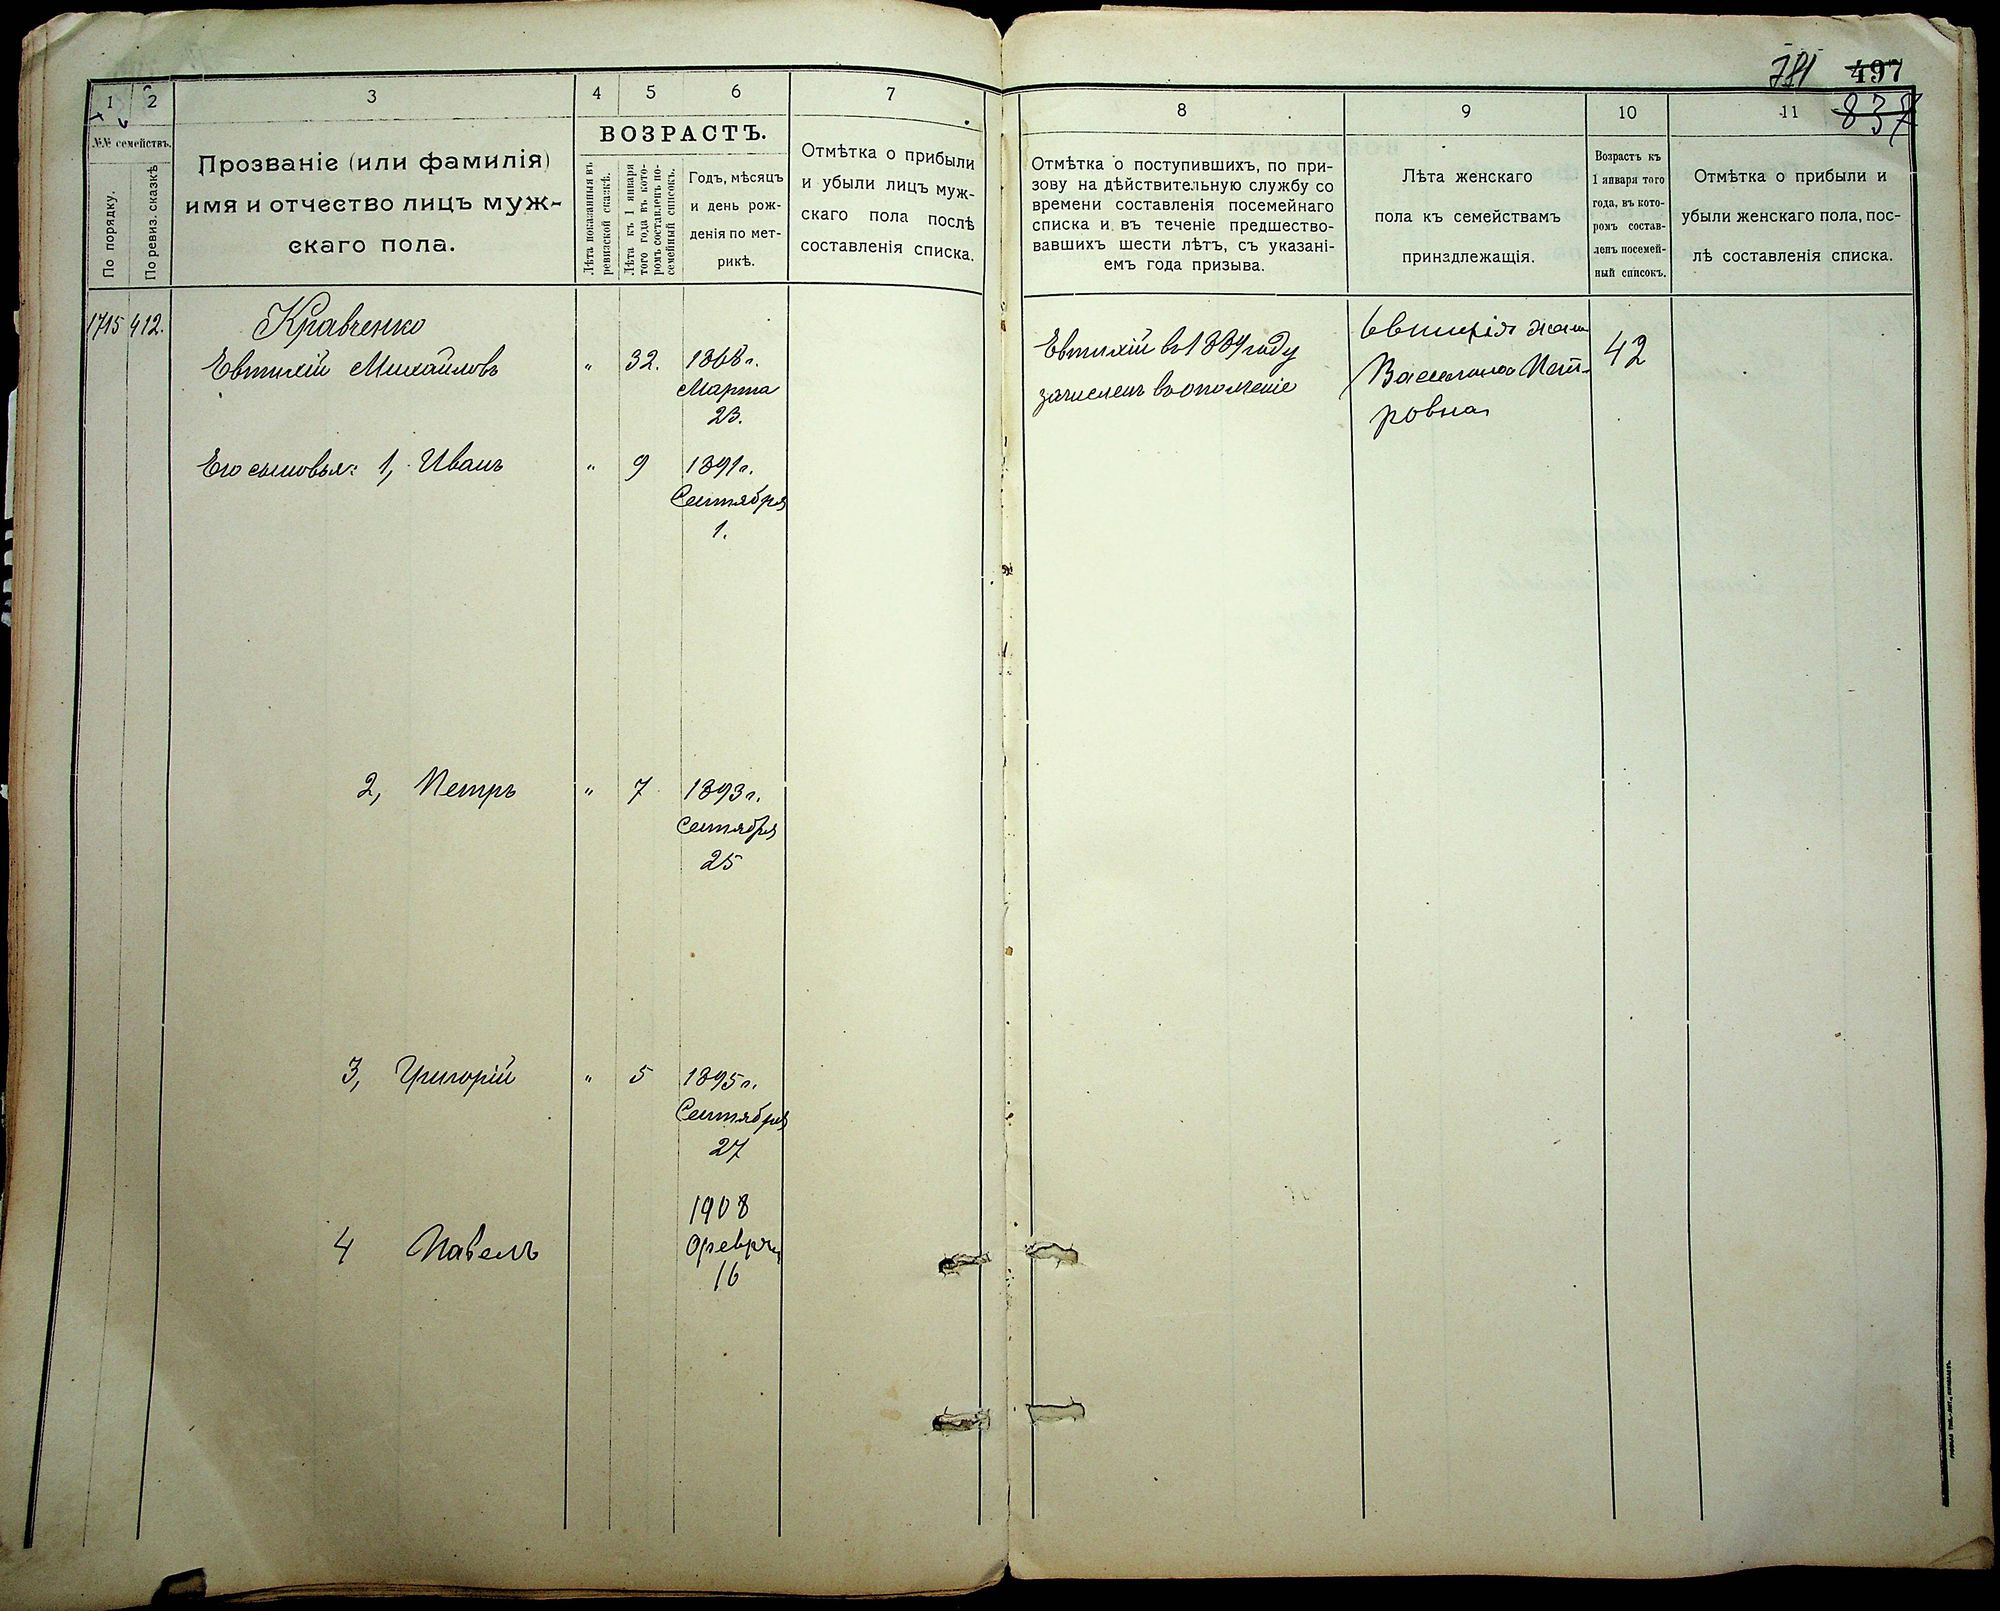 781 497
837
1 2 3 4 5 6 7
№№ семействъ.
По порядку.
По ревиз. сказкѣ
Прозваніе (или фамилія)
имя и отчество лицъ муж-
скаго пола.
ВОЗРАСТЪ.
Лѣта показанныя въ
ревизской сказкѣ.
Лѣта къ 1 января
того года въ кото-
ромъ составленъ по-
семейный списокъ.
Годъ, мѣсяцъ
и день рож-
денія по мет-
рикѣ.
Отмѣтка о прибыли
и убыли лицъ муж-
скаго пола послѣ
составленія списка.
1715 412.
Кравченко
Евтихій Михайловъ " 32. 1868 г.
Марта
23.
Его сыновья: 1, Иванъ " 9 1891 г.
Сентября
1.
2, Петръ " 7 1893 г.
Сентября
25
3, Григорій " 5 1895 г.
Сентября
27
1908
4 Павелъ Февраля
16
8 9 10 11
Отмѣтка о поступившихъ, по при-
зову на дѣйствительную службу со
времени составленія посемейнаго
списка и въ теченіе предшество-
вавшихъ шести лѣтъ, съ указані-
емъ года призыва.
Лѣта женскаго
пола къ семействамъ
принздлежащія.
Возрастъ къ
1 января того
года, въ кото-
ромъ состав-
ленъ посемей-
ный списокъ.
Отмѣтка о прибыли и
убыли женскаго пола, пос-
лѣ составленія списка.
Евтихій въ 1889 году
зачисленъ въ ополченіе
Евтихія жена
Василина Пет-
ровна
42